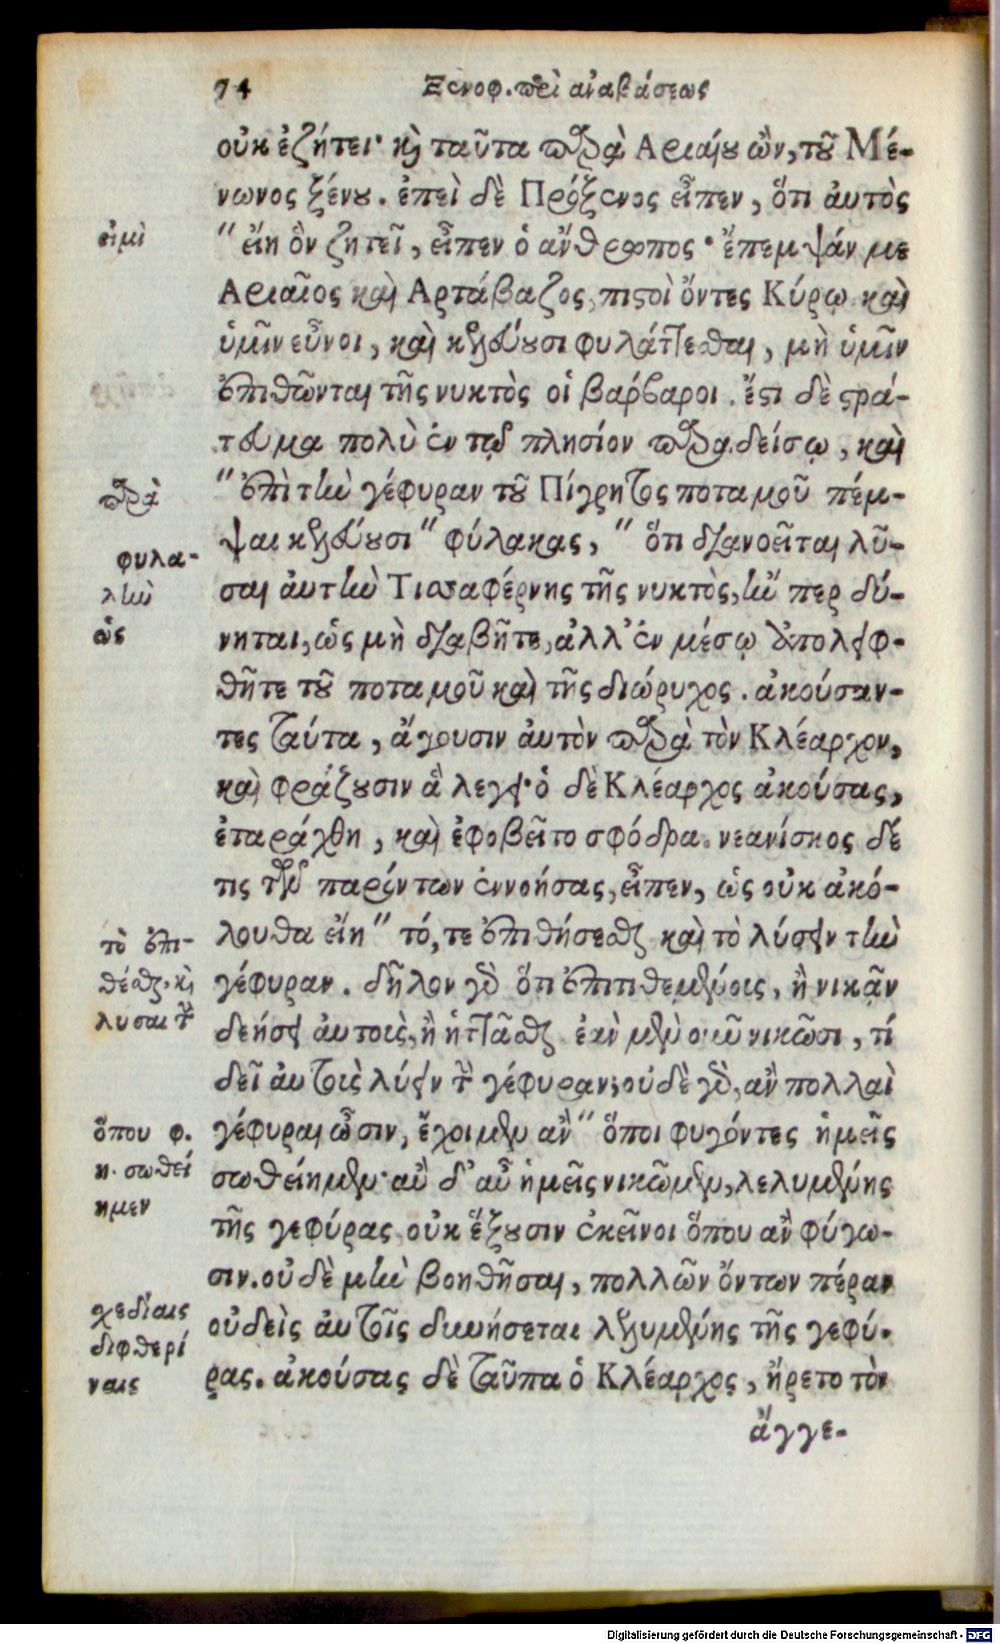 74 Ξενοφ. περὶ ἀναβάσεως
οὐκ ἐζήτει· καὶ ταῦτα παρὰ Ἀριαίου ὢν, τοῦ Μέ-
νωνος ξένου. ἐπεὶ δὲ Πρόξενος εἶπεν, ὅτι ἀυτὸς
εἰμὶ
" εἴη ὃν ζητεῖ, εἶπεν ὁ ἄνθρωπος· ἔπεμψάν με
Ἀριαῖος καὶ Ἀρτάβαζος, πιστοὶ ὄντες Κύρῳ καὶ
ὑμῖν εὖνοι, καὶ κελεύουσι φυλάττεσθαι, μὴ ὑμῖν
ἐπιθῶνται τῆς νυκτὸς οἱ βάρβαροι. ἔστι δὲ στρά-
τευμα πολὺ ἐν τῷ πλησίον παραδείσῳ, καὶ
παρὰ
" ἐπὶ τὴν γέφυραν τοῦ Πίγρητος ποταμοῦ πέμ-
ψαι κελεύουσι " φύλακας, " ὅτι διανοεῖται λῦ-
φυλα-
κὴν
σαι ἀυτὴν Τισσαφέρνης τῆς νυκτὸς, ἤν περ δύ-
ὡς
νηται, ὡς μὴ διαβῆτε, ἀλλ' ἐν μέσῳ ἀπολειφ-
θῆτε τοῦ ποταμοῦ καὶ τῆς διώρυχος. ἀκούσαν-
τες ταύτα, ἄγουσιν ἀυτὸν παρὰ τὸν Κλέαρχον,
καὶ φράζουσιν ἃ λεγει· ὁ δὲ Κλέαρχος ἀκούσας,
ἐταράχθη, καὶ ἐφοβεῖτο σφόδρα. νεανίσκος δέ
τις τῶν παρόντων ἐννοήσας, εἶπεν, ὡς οὐκ ἀκό-
λουθα εἴη " τό, τε ἐπιθήσεσθαι καὶ τὸ λύσειν τὴν
τὸ ἐπι-
θέσθαι, καὶ
λυσαι τὴν
γέφυραν. δῆλον γὰρ ὅτι ἐπιτιθεμένοις, ἢ νικᾷν
δεήσει ἀυτοιὶς, ἢ ἡττᾶσθαι ἐὰν μὲν οὖν νικῶσι, τί
δεῖ ἀυτοὺς λύειν τὴν γέφυραν; οὐδὲ γὰρ, ἂν πολλαὶ
ὅπου φ.
η. σωθεί
ημεν
γέφυραι ὦσιν, ἔχοιμεν ἂν " ὅποι φυγόντες ἡμεῖς
σωθείημεν· ἂν δ' αὖ ἡμεῖς νικῶμεν, λελυμένης
τῆς γεφύρας οὐκ ἕξουσιν ἐκεῖνοι ὅπου ἂν φύγω-
σιν. οὐδὲ μὴν βοηθῆσαι, πολλῶν ὄντων πέραν
σχεδίαις
διφθερί
ναις
οὐδεὶς ἀυτοῖς δυνήσεται λελυμένης τῆς γεφύ-
ρας. ἀκούσας δὲ ταῦτα ὁ Κλέαρχος, ἤρετο τὸν
ἄγγε-
Digitalisierung gefördert durch die Deutsche Forschungsgemeinschaft - DFG